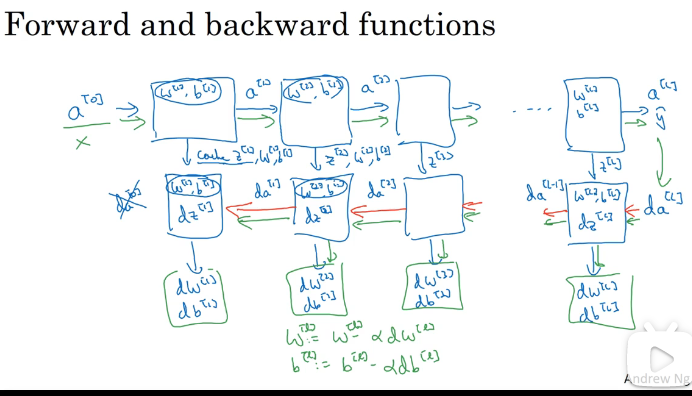 Forward and backward functions
a^[0] w^[1], b^[1] a^[1] w^[2], b^[2] a^[2] .... w^[L] b^[L] a^[L]
x ŷ
cache z^[1], w^[1], b^[1] z^[2], w^[2], b^[2] z^[3] z^[L]
da^[0] w^[1], b^[1] da^[1] w^[2], b^[2] da^[2] da^[L-1] w^[L], b^[L] da^[L]
dz^[1] dz^[2] dz^[L]
dw^[1] dw^[2] dw^[3] dw^[L]
db^[1] db^[1] db^[3] db^[L]
w^[l] := w^[l] - αdw^[l]
b^[l] := b^[l] - αdb^[l]
Andrew Ng